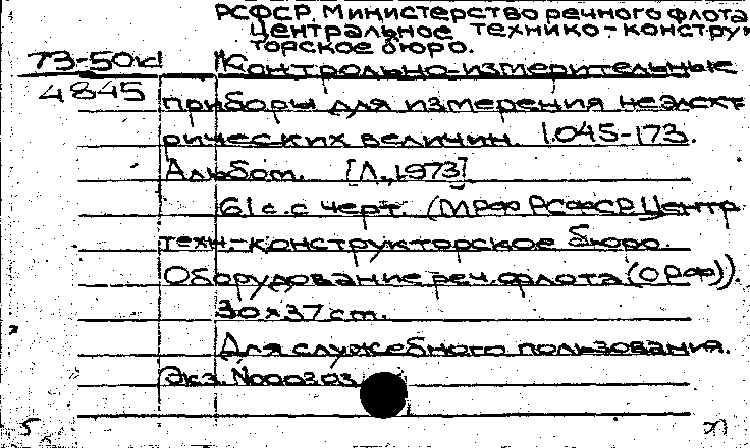 РСФСР. Министерство речного флота
Центральное технико-конструк
торское бюро.
73-50кd
4845
Контрольно-измерительные
приборы для измерения неэлект
рических величин. 1.045-173.
Альбом. [Л., 1973]
61 с. с черт. (МРФ РСФСР. Центр
техн.-конструкторское бюро.
Оборудование реч. флота (ОРФ)).
30×37 cm.
Для служебного пользования.
Экз. N000303
5